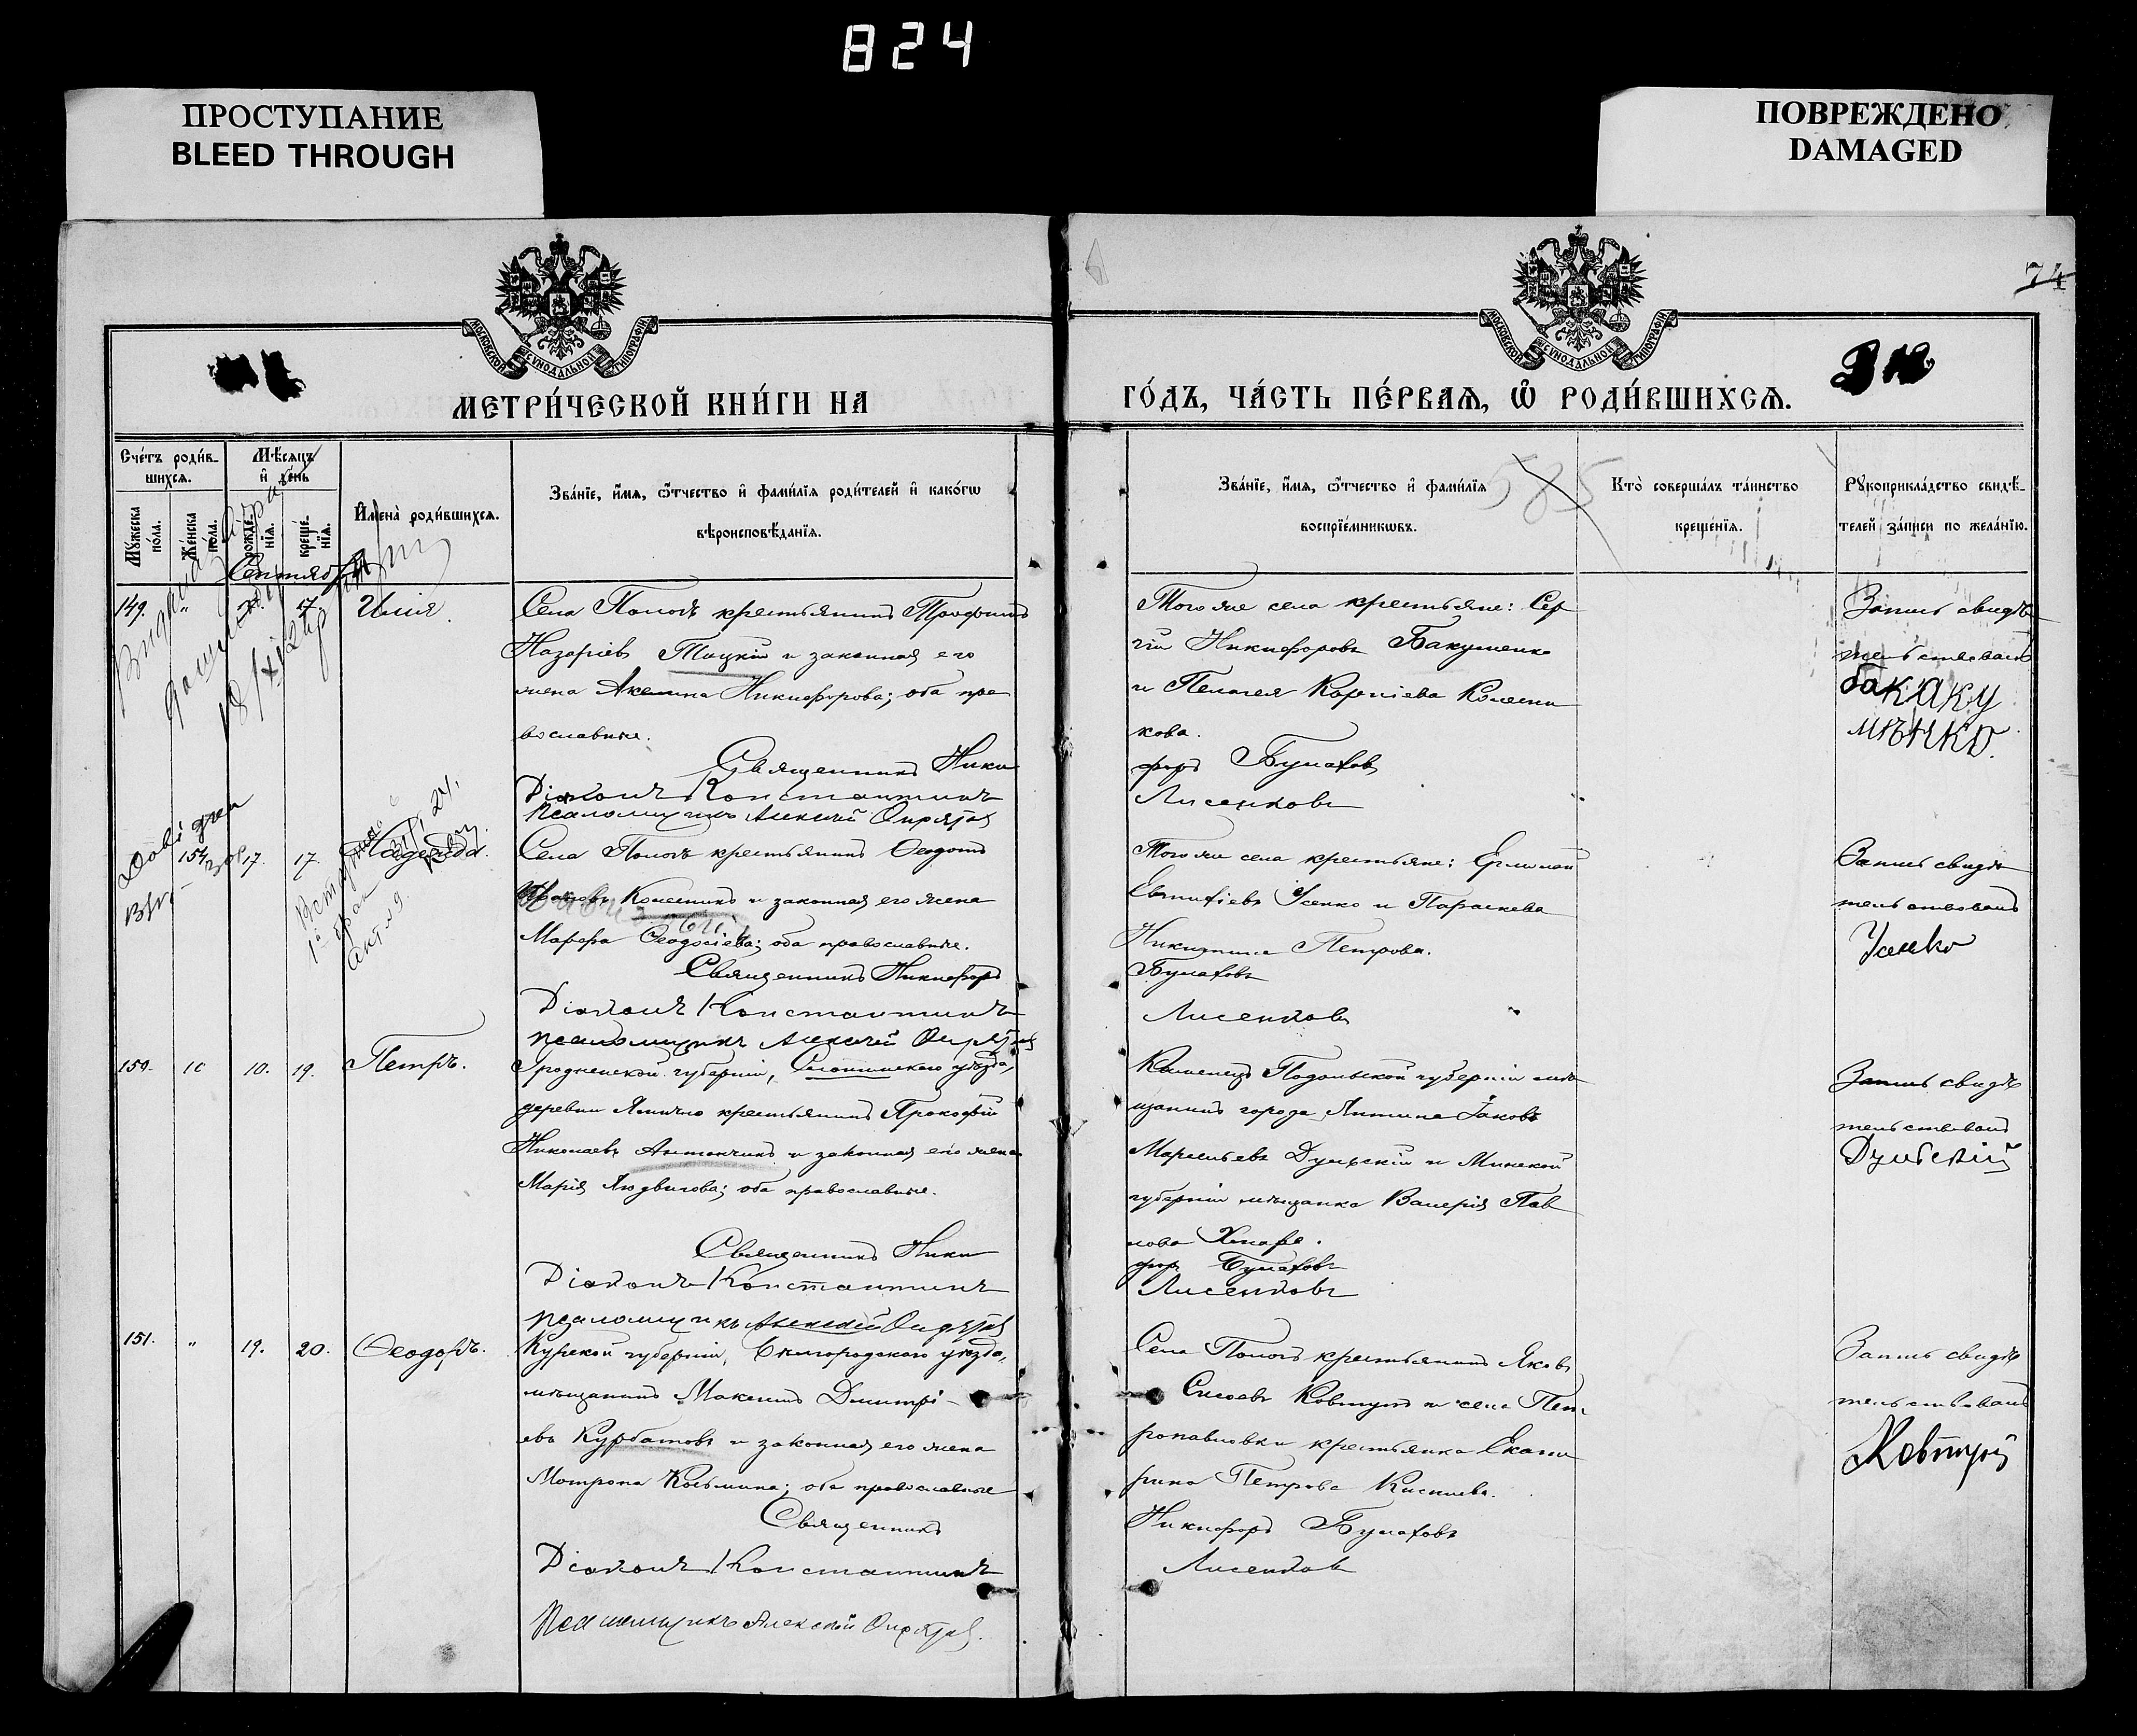 824
ПРОСТУПАНИЕ
BLEED THROUGH
ПОВРЕЖДЕНО
DAMAGED
74
МОСКОВСКОЙ СѴНОДАЛЬНОЙ ТИПОГРАФІИ
МОСКОВСКОЙ СѴНОДАЛЬНОЙ ТИПОГРАФІИ
МЕТРИ́ЧЕСКОЙ КНИ́ГИ НА
ГО́ДЪ, ЧА́СТЬ ПЕ́РВАѦ, Ѡ҆ РОДИ́ВШИХСѦ.
Сче́тъ роди́в-
шихсѧ.
Мѣ́сѧцъ
и҆ де́нь
Мꙋ́жеска по́ла.
Же́нска по́ла.
рожде́-
нїѧ.
креще́-
нїѧ.
И҆мена̀ роди́вшихсѧ.
Зва́нїе, и҆́мѧ, ѻ҆́тчество и҆ фами́лїѧ роди́телей и҆ како́гѡ
вѣроисповѣ́данїѧ.
Зва́нїе, и҆́мѧ, ѻ҆́тчество и҆ фами́лїѧ
воспрїе́мникѡвъ.
585
Кто̀ соверша́лъ та́инство
креще́нїѧ.
Рꙋкоприкла́дство свидѣ́-
телей за́писи по жела́нїю.
Сентябрь
149. " 17. Илія.
Села Пологъ крестьянинъ Трофимъ
Назаріевъ Тацкій и законная его
жена Акелина Никифорова; оба пра
вославные.
Священникъ Ники
Діаконъ Константинъ
Псаломщикъ Алексѣй
Того же села крестьяне: Сер
гій Никифоровъ Бакуменко
и Пелагея Карпіева Колесни
кова.
форъ Булаховъ
Лисенковъ
Запись свидѣ
тельствовалъ
бакаку
мѣнко.
154 17. 17. Надежда.
Села Пологъ крестьянинъ Ѳедотъ
Колесникъ и законная его жена
Марфа Ѳеодосіева; оба православные.
Священникъ Никифоръ
Діаконъ Константинъ
Псаломщикъ Алексѣй
Того же села крестьяне: Ермолай
Евтихіевъ Усенко и Параскева
Никитина Петрова.
Булаховъ
Лисенковъ
Запись свидѣ
тельствовалъ
Усенко
150. 10. 19. Петръ.
Гродненской губерніи, Слонимскаго уѣзда,
деревни крестьянинъ Прокофій
Николаевъ Антончикъ и законная его жена
Марія Людвигова; оба православные.
Священникъ Ники
Діаконъ Константинъ
Псаломщикъ Алексѣй
Каменецъ Подольской губерніи мѣ
щанинъ города Яковъ
Дульскій и Минской
губерніи мѣщанка Валерія Пав
лова
форъ Булаховъ
Лисенковъ
Запись свидѣ
тельствовалъ
Дульскій
151. " 19. 20. Ѳеодоръ.
Курской губерніи, Бѣлгородскаго уѣзда,
мѣщанинъ Максимъ Дмитрі-
евъ Курбатовъ и законная его жена
Мотрона Козьмина; оба православные
Священникъ
Діаконъ Константинъ
Псаломщикъ Алексѣй
Села Пологъ крестьянинъ Яковъ
Сисоевъ Ковтунъ и села Пет
ропавловки крестьянка Екате
рина Петрова Киснева.
Никифоръ Булаховъ
Лисенковъ
Запись свидѣ
тельствовалъ
Ковтунъ